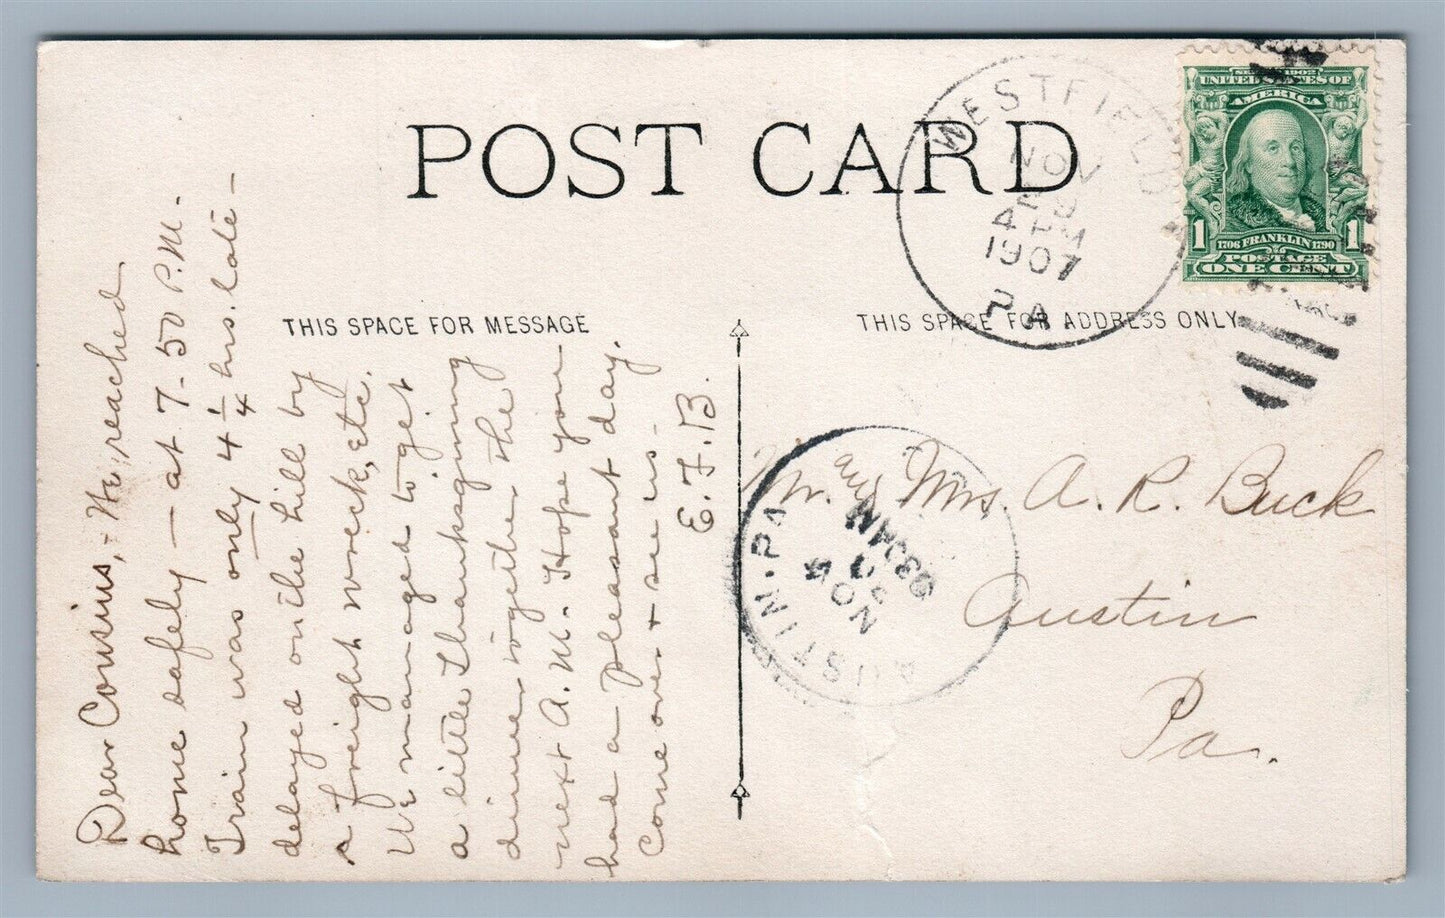 POST CARD
THIS SPACE FOR MESSAGE
THIS SPACE FOR ADDRESS ONLY
WESTFIELD
NOV
29
4 PM
1907
PA.
SERIES 1902
UNITED STATES OF
AMERICA
1 1706 FRANKLIN 1790 1
POSTAGE
ONE CENT
Dear Cousins,- We reached
home safely — at 7-50 P.M. -
Train was only 4 1/4 hrs. late -
delayed on the hill by
a freight wreck, etc.
We managed to get
a little Thanksgiving
dinner together the
next A.M. - Hope you
had a pleasant day.
Come over + see us -
E.F.B.
AUSTIN. PA
NOV
30
930AM
Mr. and Mrs. A. R. Buck
Austin
Pa.